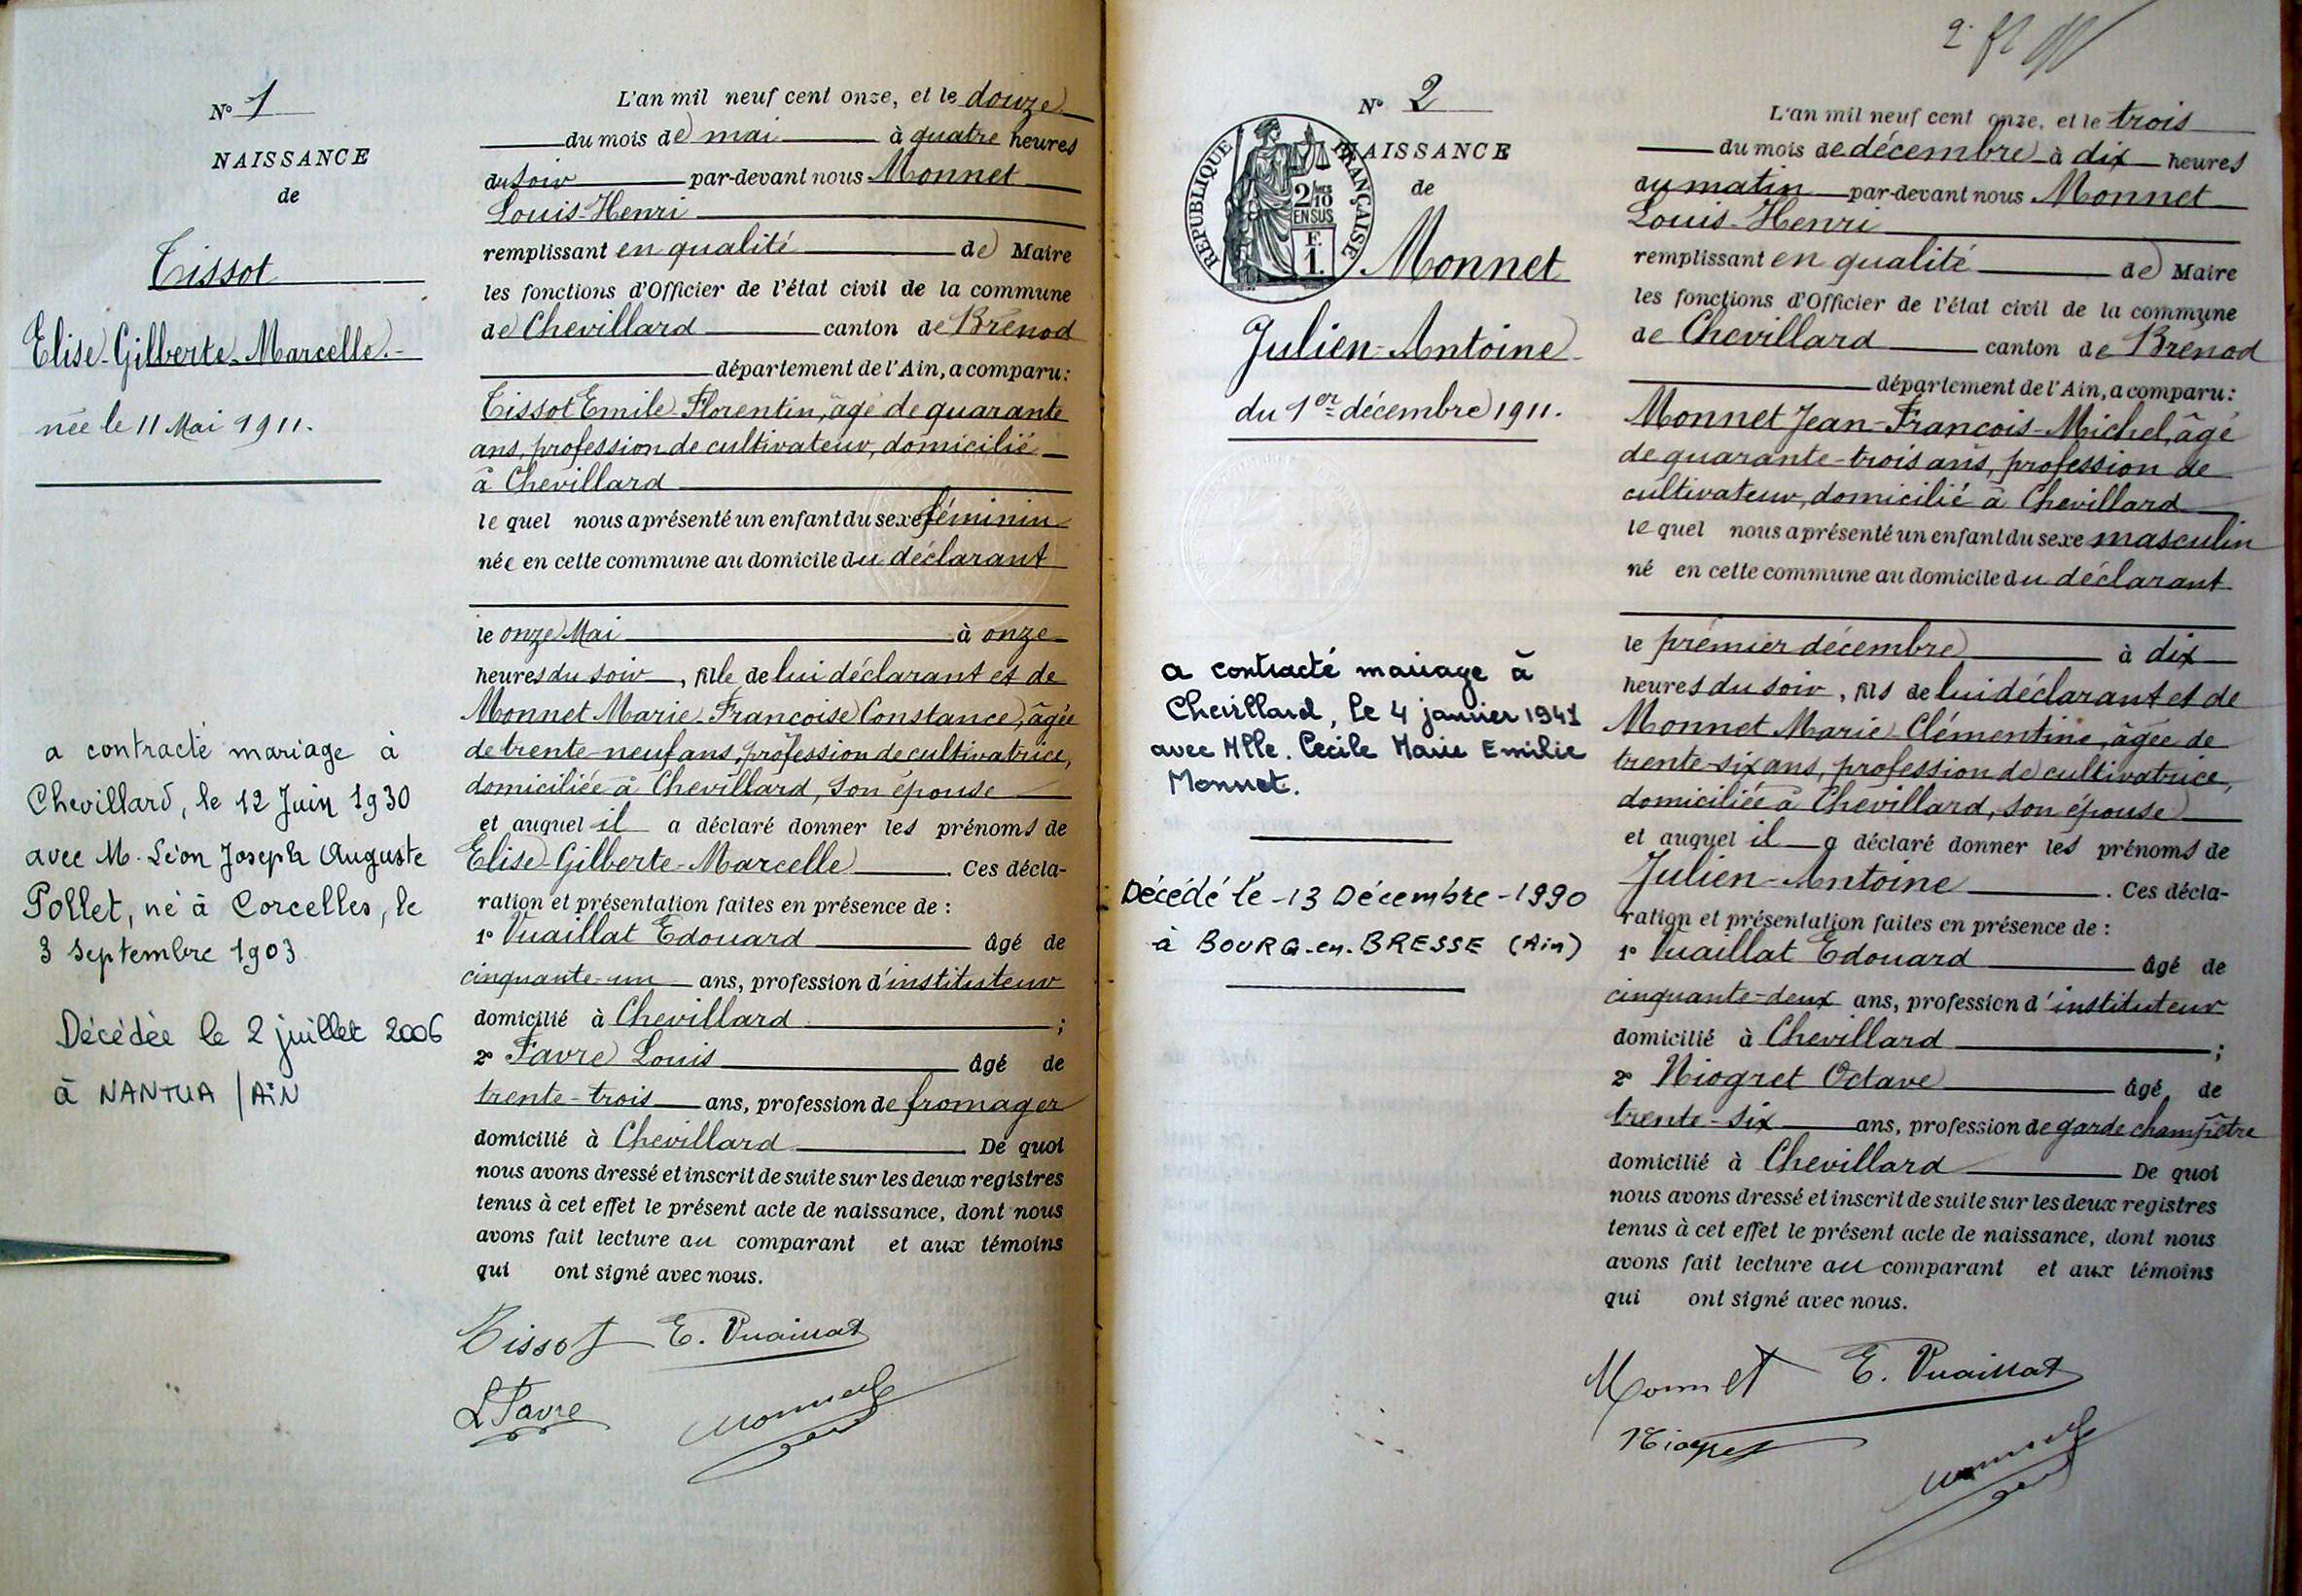 N° 1
NAISSANCE
de
Tissot
Elise-Gilberte-Marcelle.-
née le 11 Mai 1911.
a contracté mariage à
Chevillard, le 12 Juin 1930
avec M. Léon Joseph Auguste
Pollet, né à Corcelles, le
3 Septembre 1903
Décédée le 2 juillet 2006
à NANTUA / AiN
L'an mil neuf cent onze, et le douze
du mois de mai à quatre heures
du soir par-devant nous Monnet
Louis-Henri
remplissant en qualité de Maire
les fonctions d'Officier de l'état civil de la commune
de Chevillard canton de Brénod
département de l'Ain, a comparu:
Tissot Emile-Florentin, âgé de quarante
ans, profession de cultivateur, domicilié
à Chevillard
le quel nous a présenté un enfant du sexe féminin
née en cette commune au domicile du déclarant
le onze Mai à onze
heures du soir, fille de lui déclarant et de
Monnet Marie-Françoise Constance, âgée
de trente-neuf ans, profession de cultivatrice,
domiciliée à Chevillard, son épouse
et auquel il a déclaré donner les prénoms de
Elise-Gilberte-Marcelle. Ces décla-
ration et présentation faites en présence de :
1° Vuaillat Edouard âgé de
cinquante-un ans, profession d'instituteur
domicilié à Chevillard ;
2° Favre Louis âgé de
trente-trois ans, profession de fromager
domicilié à Chevillard De quoi
nous avons dressé et inscrit de suite sur les deux registres
tenus à cet effet le présent acte de naissance, dont nous
avons fait lecture au comparant et aux témoins
qui ont signé avec nous.
Tissot E. Vuaillat
L Favre Monnet
N° 2
NAISSANCE
de
RÉPUBLIQUE FRANÇAISE
2/10
EN SUS
F.
1.
Monnet
Julien-Antoine
du 1er décembre 1911.
a contracté mariage à
Chevillard, le 4 janvier 1941
avec Mlle. Cecile Marie Emilie
Monnet.
Décédé le -13 Décembre -1990
à BOURG-en-BRESSE (Ain)
L'an mil neuf cent onze, et le trois
du mois de décembre à dix heures
du matin par-devant nous Monnet
Louis-Henri
remplissant en qualité de Maire
les fonctions d'Officier de l'état civil de la commune
de Chevillard canton de Brénod
département de l'Ain, a comparu:
Monnet Jean-François-Michel, âgé
de quarante-trois ans, profession de
cultivateur, domicilié à Chevillard
le quel nous a présenté un enfant du sexe masculin
né en cette commune au domicile du déclarant
le premier décembre à dix
heures du soir, fils de lui déclarant et de
Monnet Marie-Clémentine, âgée de
trente-six ans, profession de cultivatrice,
domiciliée à Chevillard, son épouse
et auquel il a déclaré donner les prénoms de
Julien-Antoine. Ces décla-
ration et présentation faites en présence de :
1° Vuaillat Edouard âgé de
cinquante-deux ans, profession d'instituteur
domicilié à Chevillard ;
2° Niogret Octave âgé de
trente-six ans, profession de garde champêtre
domicilié à Chevillard De quoi
nous avons dressé et inscrit de suite sur les deux registres
tenus à cet effet le présent acte de naissance, dont nous
avons fait lecture au comparant et aux témoins
qui ont signé avec nous.
Monnet E. Vuaillat
Niogret Monnet